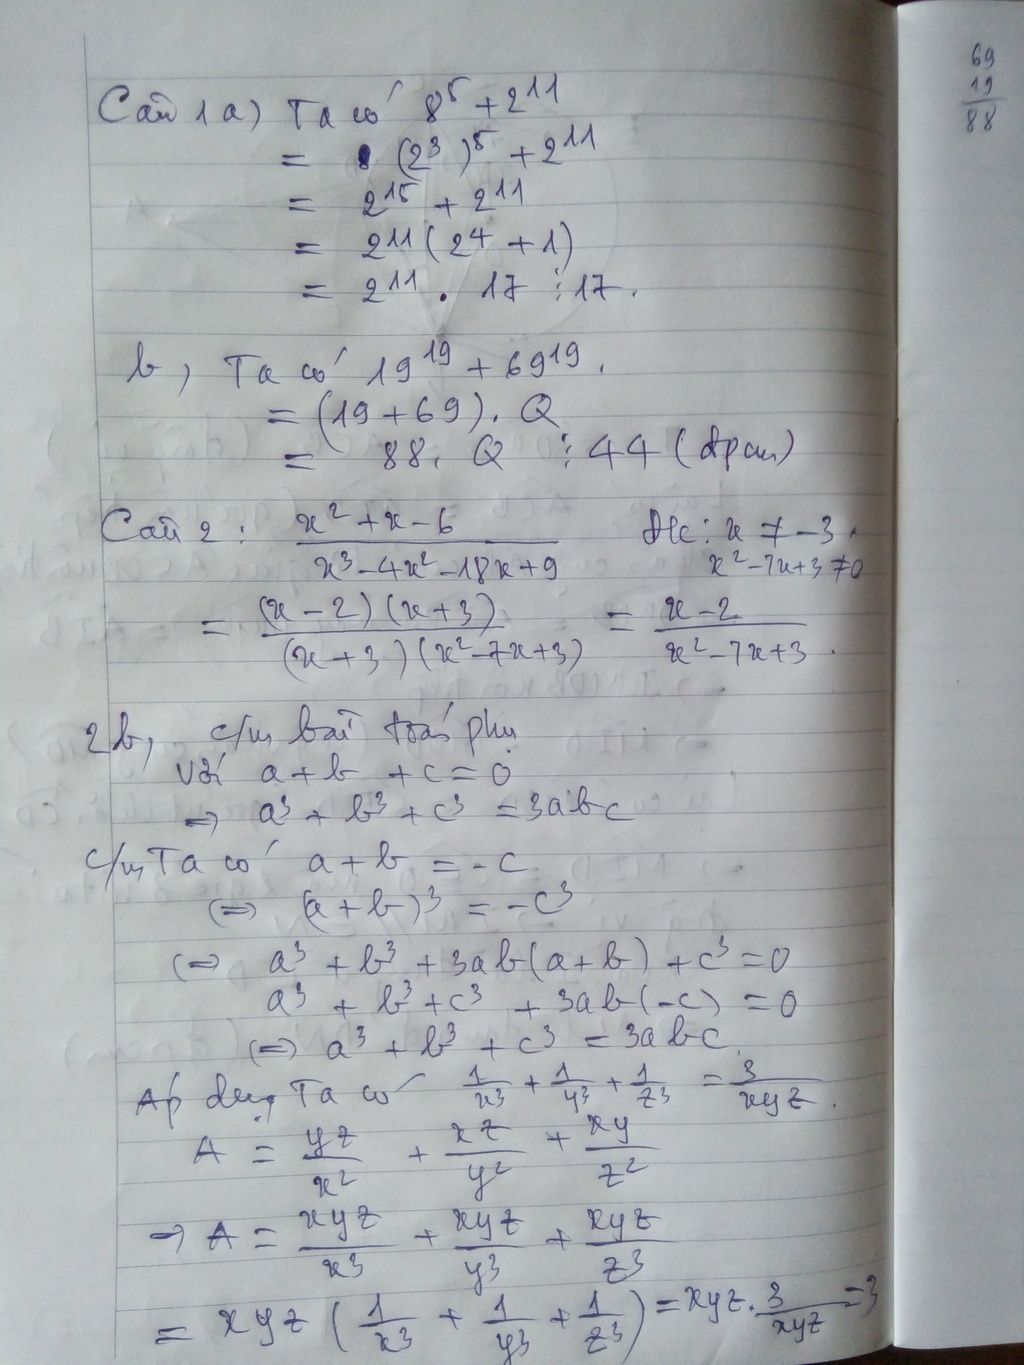 Bài 1 a) Ta có 8^5 + 2^11
= (2^3)^5 + 2^11
= 2^15 + 2^11
= 2^11 (2^4 + 1)
= 2^11 . 17 ⋮ 17.
b, Ta có 19^19 + 69^19.
= (19 + 69). Q
= 88. Q ⋮ 44 (đpcm)
Bài 2: (x^2 + x - 6)/(x^3 - 4x^2 - 18x + 9) Đk: x ≠ -3.
x^2 - 7x + 3 ≠ 0
= ((x - 2)(x + 3))/((x + 3)(x^2 - 7x + 3)) = (x - 2)/(x^2 - 7x + 3).
2b, c/m bài toán phụ
với a + b + c = 0
⇒ a^3 + b^3 + c^3 = 3abc
c/m Ta có a + b = -c
⇔ (a + b)^3 = -c^3
⇔ a^3 + b^3 + 3ab(a + b) + c^3 = 0
a^3 + b^3 + c^3 + 3ab(-c) = 0
⇔ a^3 + b^3 + c^3 = 3abc.
Áp dụng Ta có 1/x^3 + 1/y^3 + 1/z^3 = 3/xyz.
A = yz/x^2 + xz/y^2 + xy/z^2
⇒ A = xyz/x^3 + xyz/y^3 + xyz/z^3
= xyz (1/x^3 + 1/y^3 + 1/z^3) = xyz. 3/xyz = 3
69
19
88